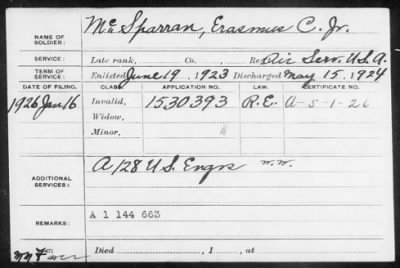 NAME OF SOLDIER: McSparran, Erasmus C. Jr.
SERVICE: Late rank, Co. , Re Air Serv. U.S.A.
TERM OF SERVICE: Enlisted June 19, 1923 Discharged May 15, 1924
DATE OF FILING. CLASS. APPLICATION NO. LAW. CERTIFICATE NO.
1926 Jan 16 Invalid, 1530393 R.E. A-5-1-26
Widow,
Minor,
ADDITIONAL SERVICES: A 128 U.S. Engrs W.W.
REMARKS: A 1 144 663
Died , 1 , at